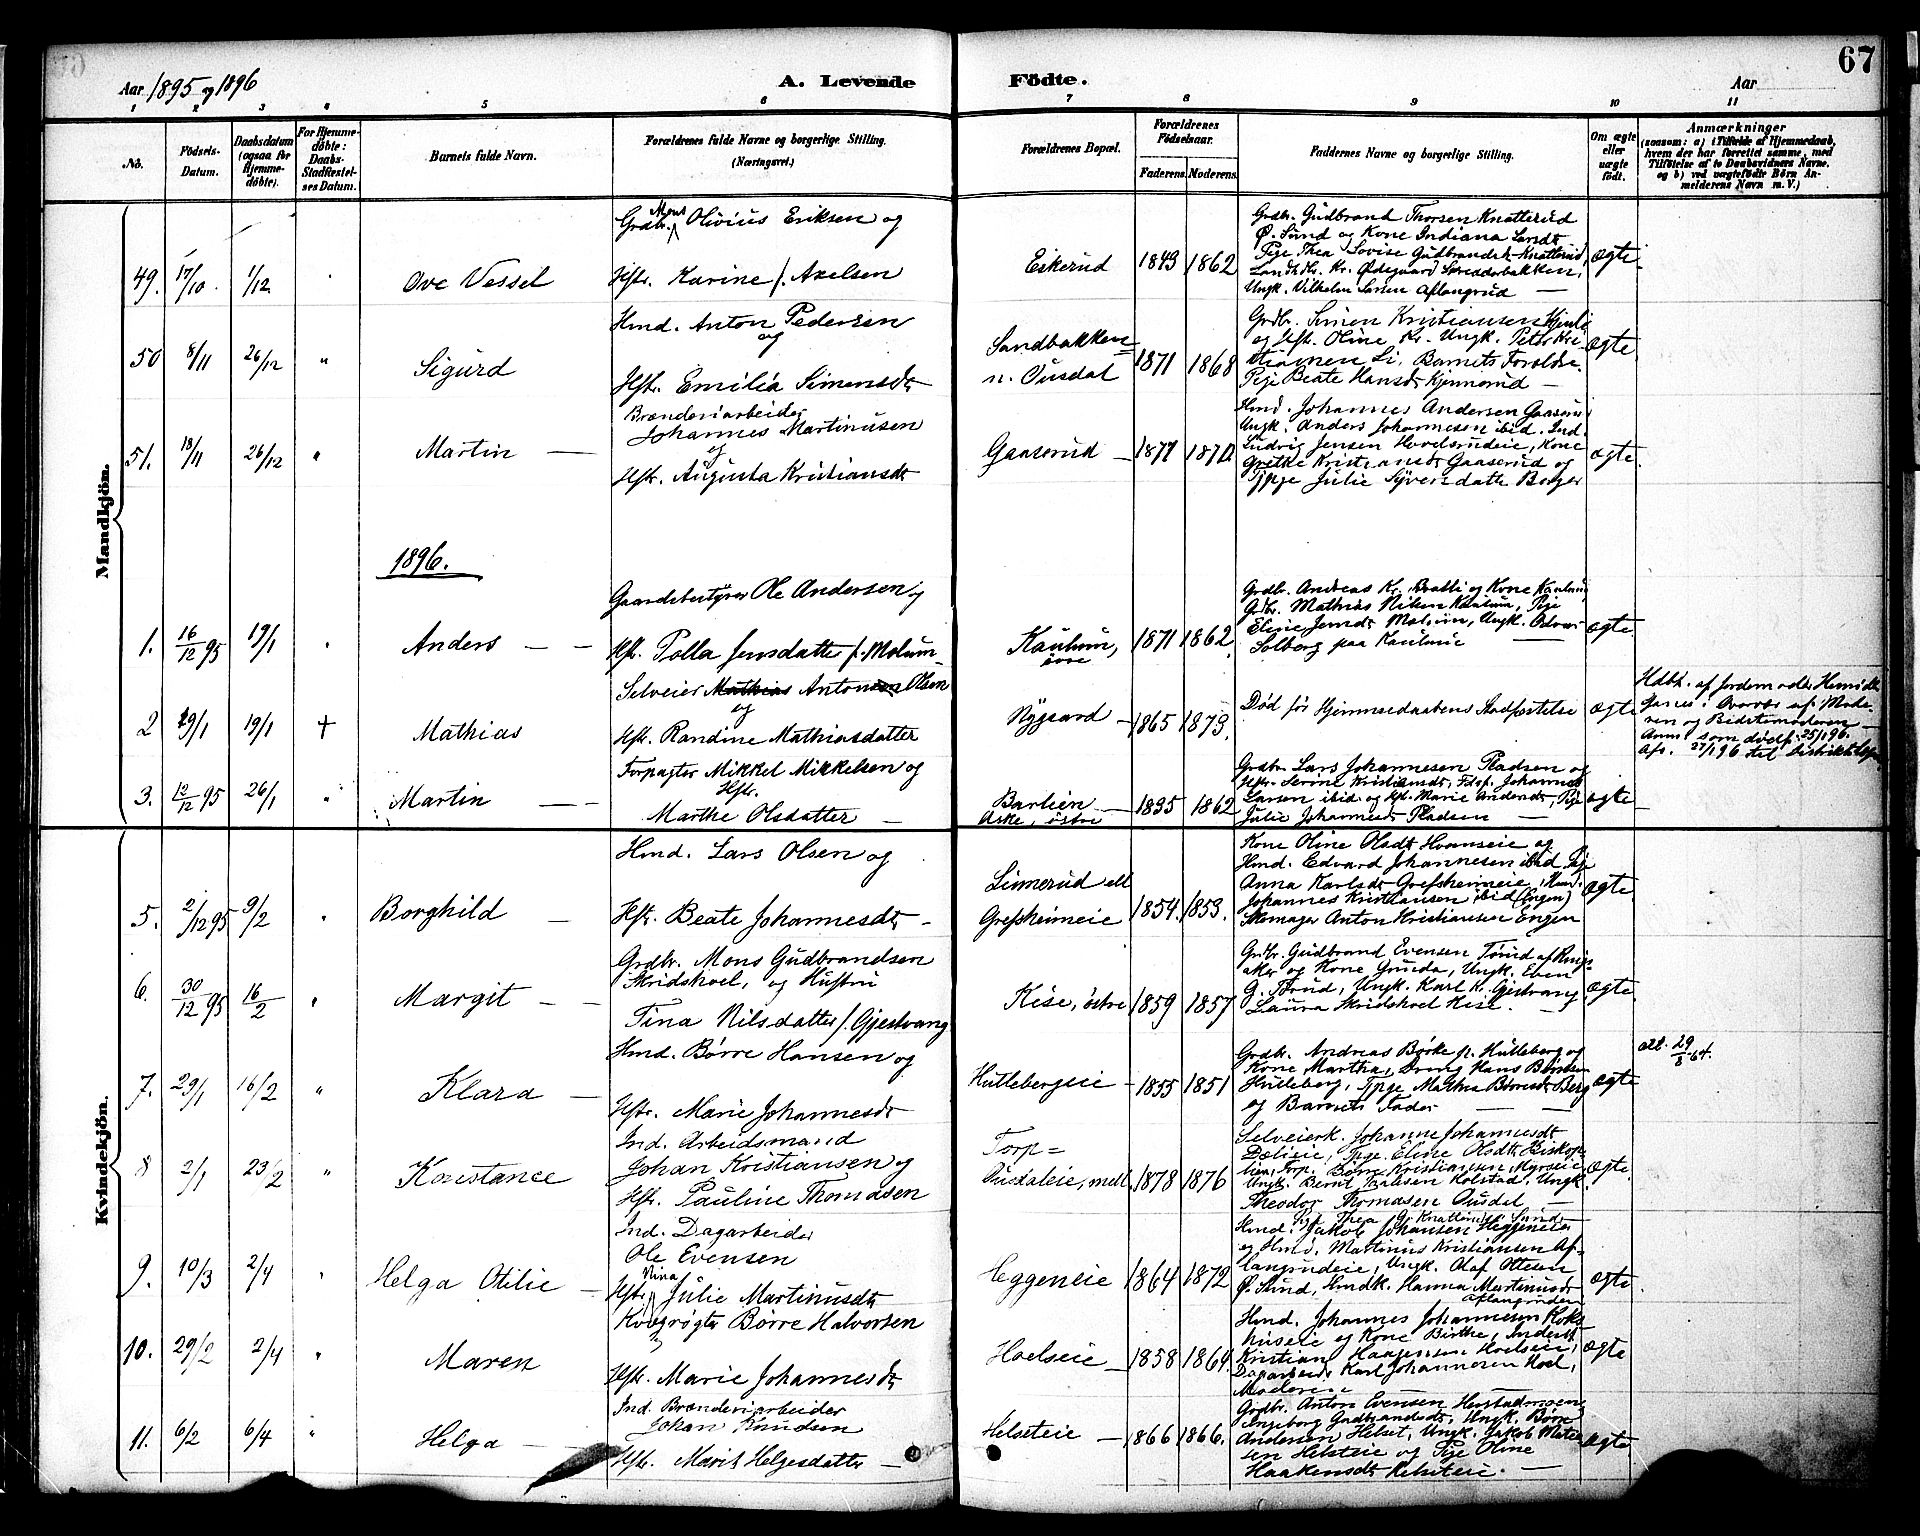 67
Aar 1895 og 1896
A. Levende
Födte.
Aar
1 2 3 4 5 6 7 8 9 10 11
No.
Födsels-
Datum.
Daabsdatum
(ogsaa for
Hjemme-
döbte).
For Hjemme-
döbte:
Daabs-
Stadfæstel-
ses Datum.
Barnets fulde Navn.
Forældrenes fulde Navne og borgerlige Stilling.
(Næringsvei.)
Forældrenes Bopæl.
Forældrenes
Födselsaar.
Faderens. Moderens.
Faddernes Navne og borgerlige Stilling.
Om ægte
eller
uægte
födt.
Anmærkninger
(saasom: a) i Tilfælde af Hjemmedaab,
hvem der har forrettet samme, med
Tilföielse af to Daabsvidners Navne,
og b) ved uægtefödte Börn An-
melderens Navn m. V.)
Mandkjön.
49. 17/10 1/12 Ove Vessel
Grdbr. Mons Olivius Eriksen og
Hstr. Karine f. Axelsen
Eskerud 1843 1862
Grdbr. Gudbrand Thorsen Knatterud
Ø. Sund og Kone Indiana Samdt
Pige Thea Lovise Gudbrandsdt Knatterud,
Ungk. Vilhelm Larsen Aflangrud —
ægte
50 8/11 26/12 " Sigurd
Hmd. Anton Pedersen
og
Hstr. Emilia Simensdt
Sandbakken
n. Ousdal 1871 1868
Grdbr. Simen Kristiansen
og Hstr. Oline Kr. Ungk. Peter Kri-
stiansen Li, Barnets Forældre
Pige Beate Hansdt Kjennerud —
ægte
51. 18/11 26/12 " Martin —
Brænderiarbeider
Johannes Martinusen
og
Hstr. Augusta Kristiansdt
Gaaserud — 1877 1870
Hmd. Johannes Andersen Gaaserud
Ungk. Anders Johannesen ibid. Ind.
Ludvig Jensen Hovelsrudeie, Kone
Grethe Kristiansdt Gaaserud og
Tjpge Julie Syversdatter Berger
ægte
1896.
1. 16/12 95 19/1 " Anders — —
Gaardsbestyrer Ole Andersen og
Hst. Polla Jensdatter f. Molum —
Kaulum,
øvre 1871 1862
Grdbr. Andreas Kr. Bratli og Kone Kaulum,
Gdbr. Mathias Nilsen Kaulum, Pige
Eline Jensdt Molum, Ungk.
Solberg paa Kaulum —
ægte
2 19/1 19/1 + Mathias
Selveier Mathias Antonsen Olsen
og
Hstr. Randine Mathiasdatter
Nygaard — 1865 1873.
Død før Hjemmedaabens Stadfæstelse
ægte
Hdbt. af Jordemoder
ren og Bedstemoderen —
Anm. som død 25/1 96.
Afs. 27/1 96 til
3. 12/12 95 26/1 " Martin —
Forpagter Mikkel Mikkelsen og
Hstr.
Marthe Olsdatter —
Barlien —
Aske, østre 1835 1862
Grdbr. Lars Johannesen Pladsen og
Hstr. Serine Kristiansdt, Johannes
Larsen ibid. og Pige Marie Andersdt, Pige
Julie Johannesdt Pladsen —
ægte
Kvindekjön.
5. 2/12 95 9/2 " Borghild —
Hmd. Lars Olsen og
Hstr. Beate Johannesdt —
Linnerud ell
Grefsheimeie 1854. 1853.
Kone Oline Olsdt Hvamseie og
Hmd. Edvard Johannesen ibid Pige
Anna Karlsdt Grefsheimeie, Hmd.
Johannes Kristiansen ibid (Engen)
Skomager Anton Kristiansen Engen
ægte
6. 30/12 95 16/2 " Margit — —
Grdbr. Mons Gudbrandsen
Skridshoel, og Hustru
Tina Nilsdatter f. Gjestvang
Kise, østre 1859 1857
Grdbr. Gudbrand Evensen Torud af Rings-
aker og Kone Gunda, Ungk. Even
G. Torud, Ungk. Karl K. Gjestvang
Laura Skridshoel Kise. —
ægte
7. 29/1 16/2 " Klara —
Hmd. Børre Hansen og
Hstr. Marie Johannesdt
Hullebergeie — 1855 1851
Grdbr. Andreas Børke p. Hulleberg og
Kone Martha, Dreng Hans Børresen
Hulleberg, Tpge Mathia Børresdt Berg
og Barnets Fader —
ægte
att. 29/8-64.
8 2/1 23/2 " Konstance
Ind. Arbeidsmand
Johan Kristiansen og
Hst. Pauline Thomasen
Torp=
Ousdaleie, mell. 1878 1876
Selveierk. Johanne Johannesdt
Dælieie, Tpge. Eline Olsdt Biskop-
lien, Torp. Børre Kristiansen Myrseie
Ungk. Bernt Paulsen Kolstad, Ungk.
Theodor Thomasen Ousdal —
ægte.
9. 10/3 2/4 " Helga Otilie —
Ind. Dagarbeider
Ole Evensen
Hstr. Nina Julie Martinusdt
Eggeneie 1864 1872
Pge Thea G. Knatterud Sund —
Hmd. Jakob Johansen Heggeneie
og Hmd. Martinus Kristiansen Af-
langrudeie, Ungk. Olaf Ottesen
Ø. Sund, Hmdk. Hanna Martinusdt
Aflangrudeie
ægte
10. 29/2 2/4 " Maren
Kvægrøgter Børre Halvorsen
Hstr. Marie Johannesdt
Hoelseie — 1858 1864.
Hmd. Johannes Johannesen Hoks-
huseie og Kone Birthe, Inderst
Kristian Haagensen Hoelseie,
Dagarbeider Karl Johannesen Hoel,
Moderen
ægte
11. 6/2 6/4 " Helga —
Ind. Brænderiarbeider
Johan Knudsen
Hstr. Marit Helgesdatter —
Helseteie — 1866 1866.
Grdbr. Anton Evensen
Ingeborg Gudbrandsdt, Ungk. Børre
Andersen Helset, Ungk. Jakob Mathi-
sen Helsteie og Pige Oline
Haakensdt Helseteie. —
ægte